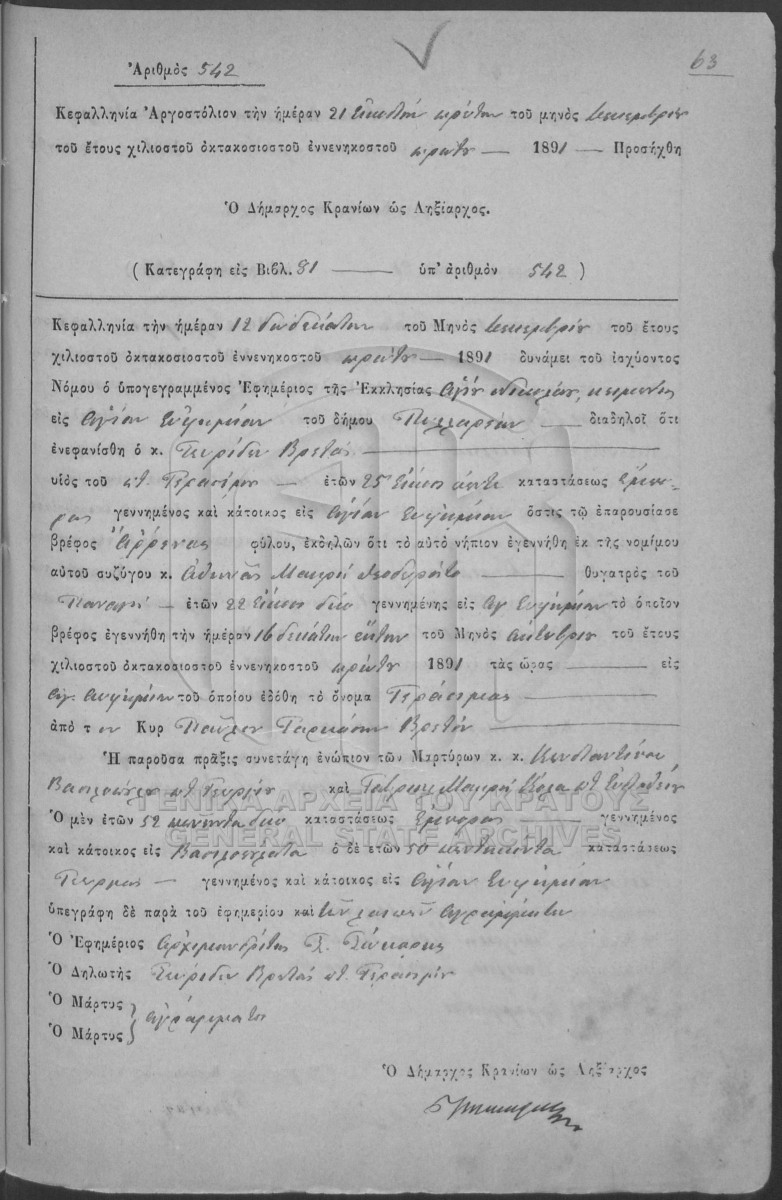 63
Ἀριθμὸς 542
Κεφαλληνία Ἀργοστόλιον τὴν ἡμέραν 21 Εἰκοστήν πρώτην τοῦ μηνὸς Δεκεμβρίου
τοῦ ἔτους χιλιοστοῦ ὀκτακοσιοστοῦ ἐννενηκοστοῦ πρώτου — 1891 — Προσήχθη
Ὁ Δήμαρχος Κρανίων ὡς Ληξίαρχος.
(Κατεγράφη εἰς Βιβλ. 31 — ὑπ' ἀριθμὸν 542)
Κεφαλληνία τὴν ἡμέραν 12 δωδεκάτην τοῦ Μηνὸς Δεκεμβρίου τοῦ ἔτους
χιλιοστοῦ ὀκτακοσιοστοῦ ἐννενηκοστοῦ πρώτου — 1891 δυνάμει τοῦ ἰσχύοντος
Νόμου ὁ ὑπογεγραμμένος Ἐφημέριος τῆς Ἐκκλησίας Ἁγίου Νικολάου, κειμένης
εἰς Ἁγίαν Εὐφημίαν τοῦ δήμου Πυλλαρέων — διαδηλοῖ ὅτι
ἐνεφανίσθη ὁ κ. Σπυρίδων Βρεττός —
υἱὸς τοῦ π.τ. Γερασίμου — ἐτῶν 25 εἴκοσι πέντε καταστάσεως ἔμπο-
ρος γεννημένος καὶ κάτοικος εἰς Ἁγίαν Εὐφημίαν ὅστις τῷ ἐπαρουσίασε
βρέφος Ἄρρενος φύλου, ἐκδηλῶν ὅτι τὸ αὐτὸ νήπιον ἐγεννήθη ἐκ τῆς νομίμου
αὐτοῦ συζύγου κ. Ἀθηνᾶς Μακρῆ — θυγατρὸς τοῦ
Παναγῆ — ἐτῶν 22 εἴκοσι δύο γεννημένης εἰς Ἁγ Εὐφημίαν τὸ ὁποῖον
βρέφος ἐγεννήθη τὴν ἡμέραν 16 δεκάτην ἕκτην τοῦ Μηνὸς Ὀκτωβρίου τοῦ ἔτους
χιλιοστοῦ ὀκτακοσιοστοῦ ἐννενηκοστοῦ πρώτου 1891 τὰς ὥρας — εἰς
Ἁγ. Εὐφημίαν τοῦ ὁποίου ἐδόθη τὸ ὄνομα Γεράσιμος —
ἀπὸ τ ον Κυρ Παῦλον Βρετόν —
Ἡ παροῦσα πρᾶξις συνετάγη ἐνώπιον τῶν Μαρτύρων κ. κ. Κωνσταντίνου
π.τ. Γεωργίου καὶ Γαβριὴλ Μακρῆ π.τ.
Ὁ μὲν ἐτῶν 52 πενῆντα δύο καταστάσεως ἔμπορος — γεννημένος
καὶ κάτοικος εἰς Βασιλοπουλάτα ὁ δὲ ἐτῶν 50 πεντήκοντα καταστάσεως
— γεννημένος καὶ κάτοικος εἰς Ἁγίαν Εὐφημίαν
ὑπεγράφη δὲ παρὰ τοῦ ἐφημερίου καὶ τῶν λοιπῶν ἀγραμμάτων
Ὁ Ἐφημέριος Ἀρχιμανδρίτης
Ὁ Δηλωτὴς Σπυρίδων Βρεττός π.τ. Γερασίμου
Ὁ Μάρτυς
Ὁ Μάρτυς } ἀγράμματοι
Ὁ Δήμαρχος Κρανίων ὡς Ληξίαρχος
ΓΕΝΙΚΑ ΑΡΧΕΙΑ ΤΟΥ ΚΡΑΤΟΥΣ
GENERAL STATE ARCHIVES